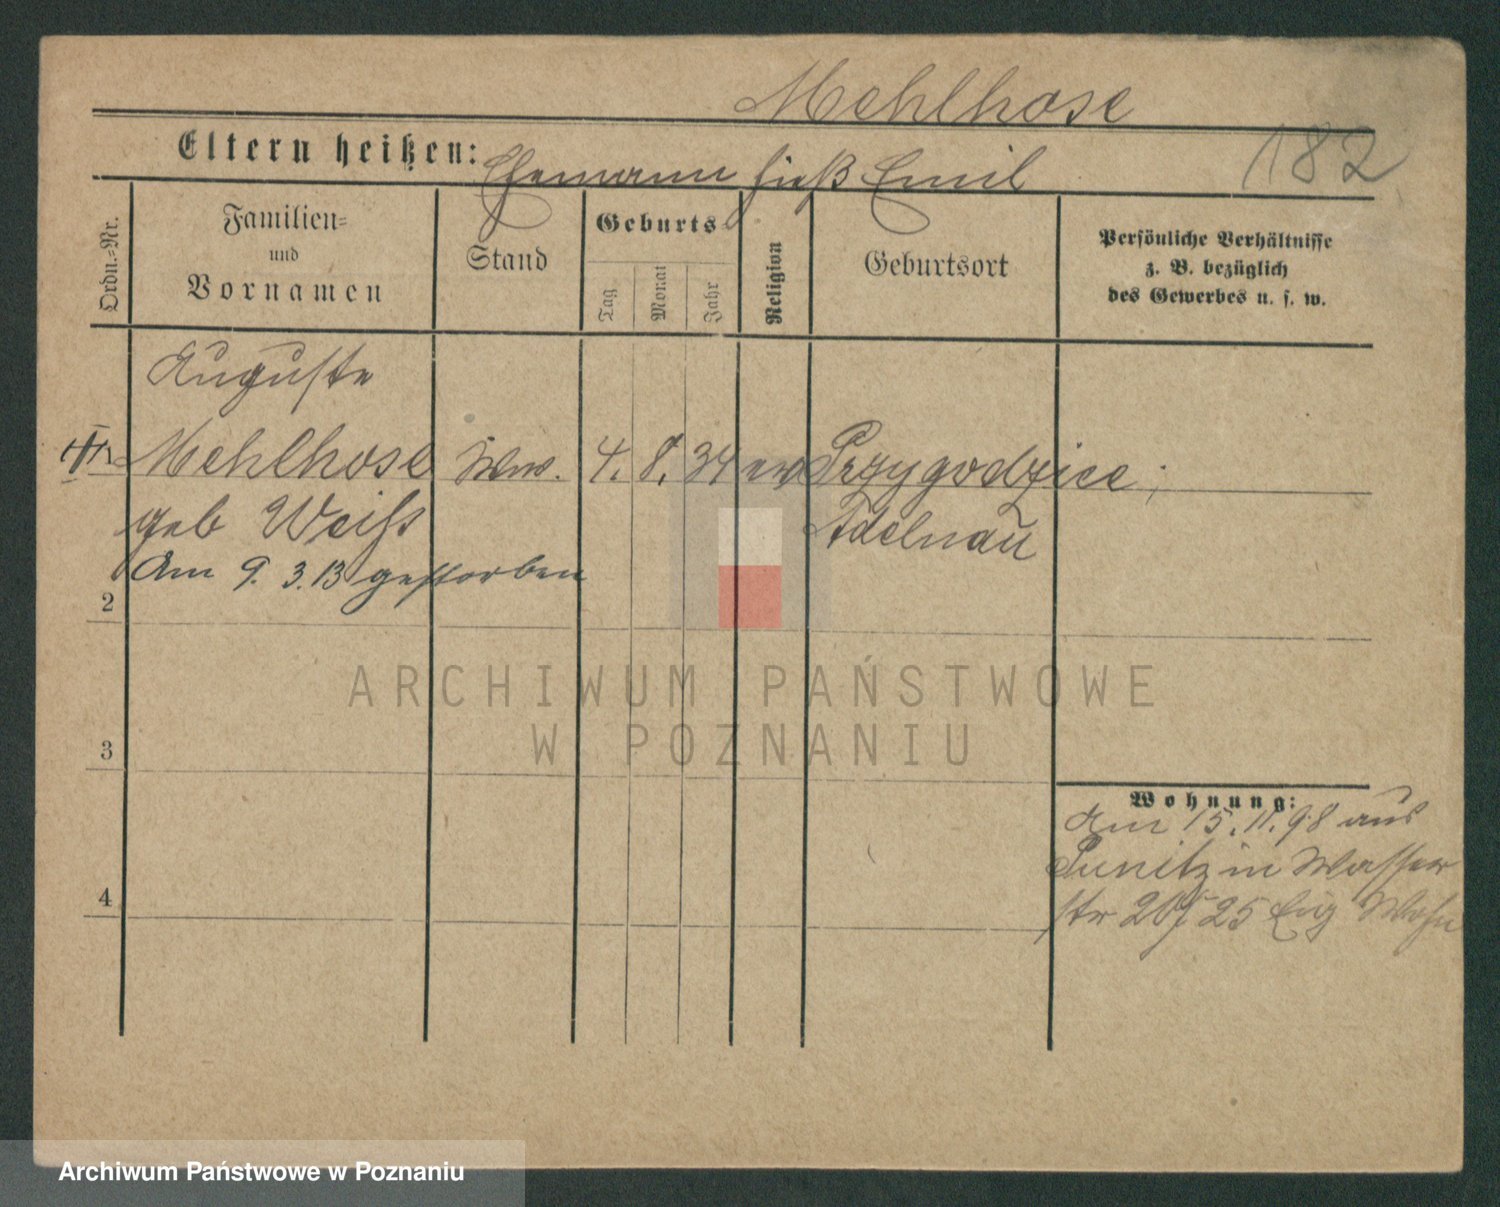 Mehlhose
182
Eltern heißen: Ehemann hieß Emil
Ordn.-Nr.
Familien-
und
Vornamen
Stand
Geburts-
Tag
Monat
Jahr
Religion
Geburtsort
Persönliche Verhältnisse
z. B. bezüglich
des Gewerbes u. s. w.
Auguste
Mehlhose Wwe. 4. 8. 34 ev Przygodzice;
geb Weiß Adelnau
Am 9. 3. 13 gestorben
2
3
4
Wohnung:
Am 15. 11. 98 aus
Punitz in Wasser
str 25 Eig Wohn
ARCHIWUM PAŃSTWOWE
W POZNANIU
Archiwum Państwowe w Poznaniu